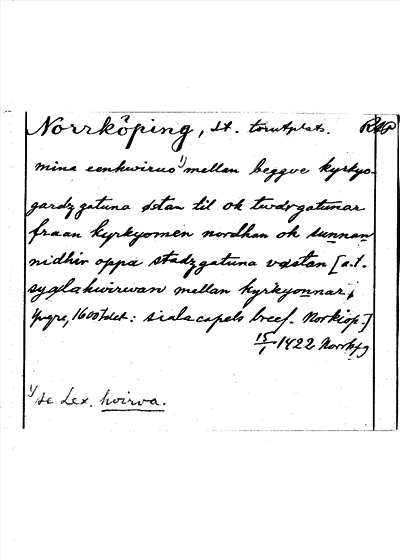 Norrköping, st. torutplats. RAP
mina eenhwirvo ¹) mellan beggve kyrkyo-
gardz gatuna østan til ok twdrgatunar
fraan kyrkyomen nordhan ok sunnan
nidhir oppa stadzgatuna væstan [a.t.
syælahwirwan mellan kyrkyonnar,
Yngre, 1600 talet: siala capels breef. Norkiöp.]
15/1 1422 Norrkpg
¹) se Lex. hvirva.